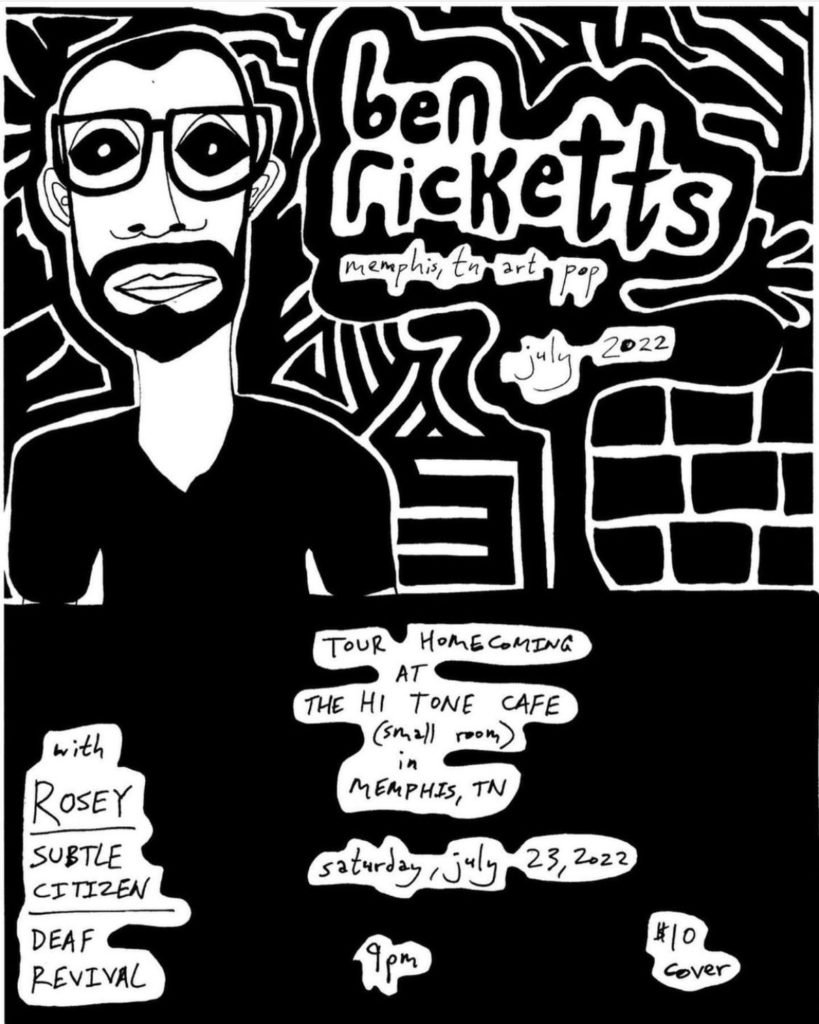 ben
ricketts
memphis, tn art pop
july 2022
TOUR HOMECOMING
AT
THE HI TONE CAFE
(small room)
in
MEMPHIS, TN
with
ROSEY
SUBTLE
CITIZEN
DEAF
REVIVAL
saturday, july 23, 2022
9pm
$10
cover